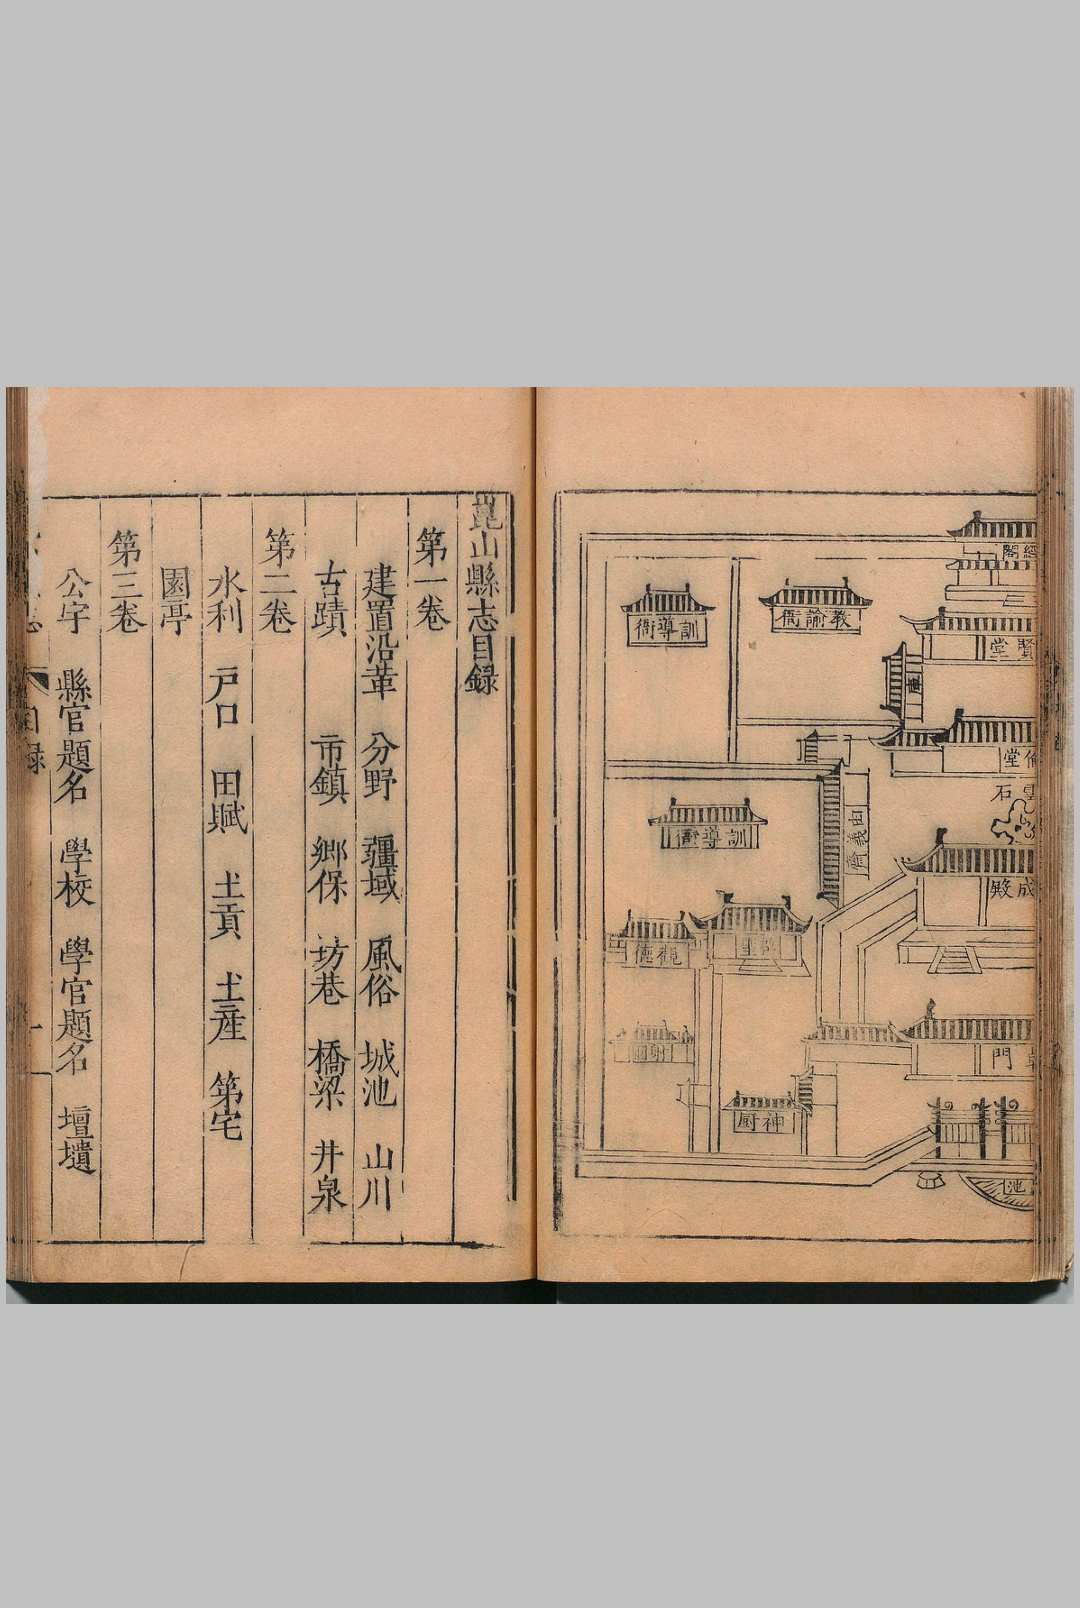 經閣
賢堂
庫
倫堂
雲
石
教諭衙
訓導衙
由義齋
訓導衙
成殿
觀德
射圃
戟門
神厨
池
崑山縣志目録
第一卷
建置沿革 分野 疆域 風俗 城池 山川
古蹟 市鎮 鄉保 坊巷 橋梁 井泉
第二卷
水利 戸口 田賦 土貢 土産 第宅
園亭
第三卷
公宇 縣官題名 學校 學官題名 壇壝
志 目録 一